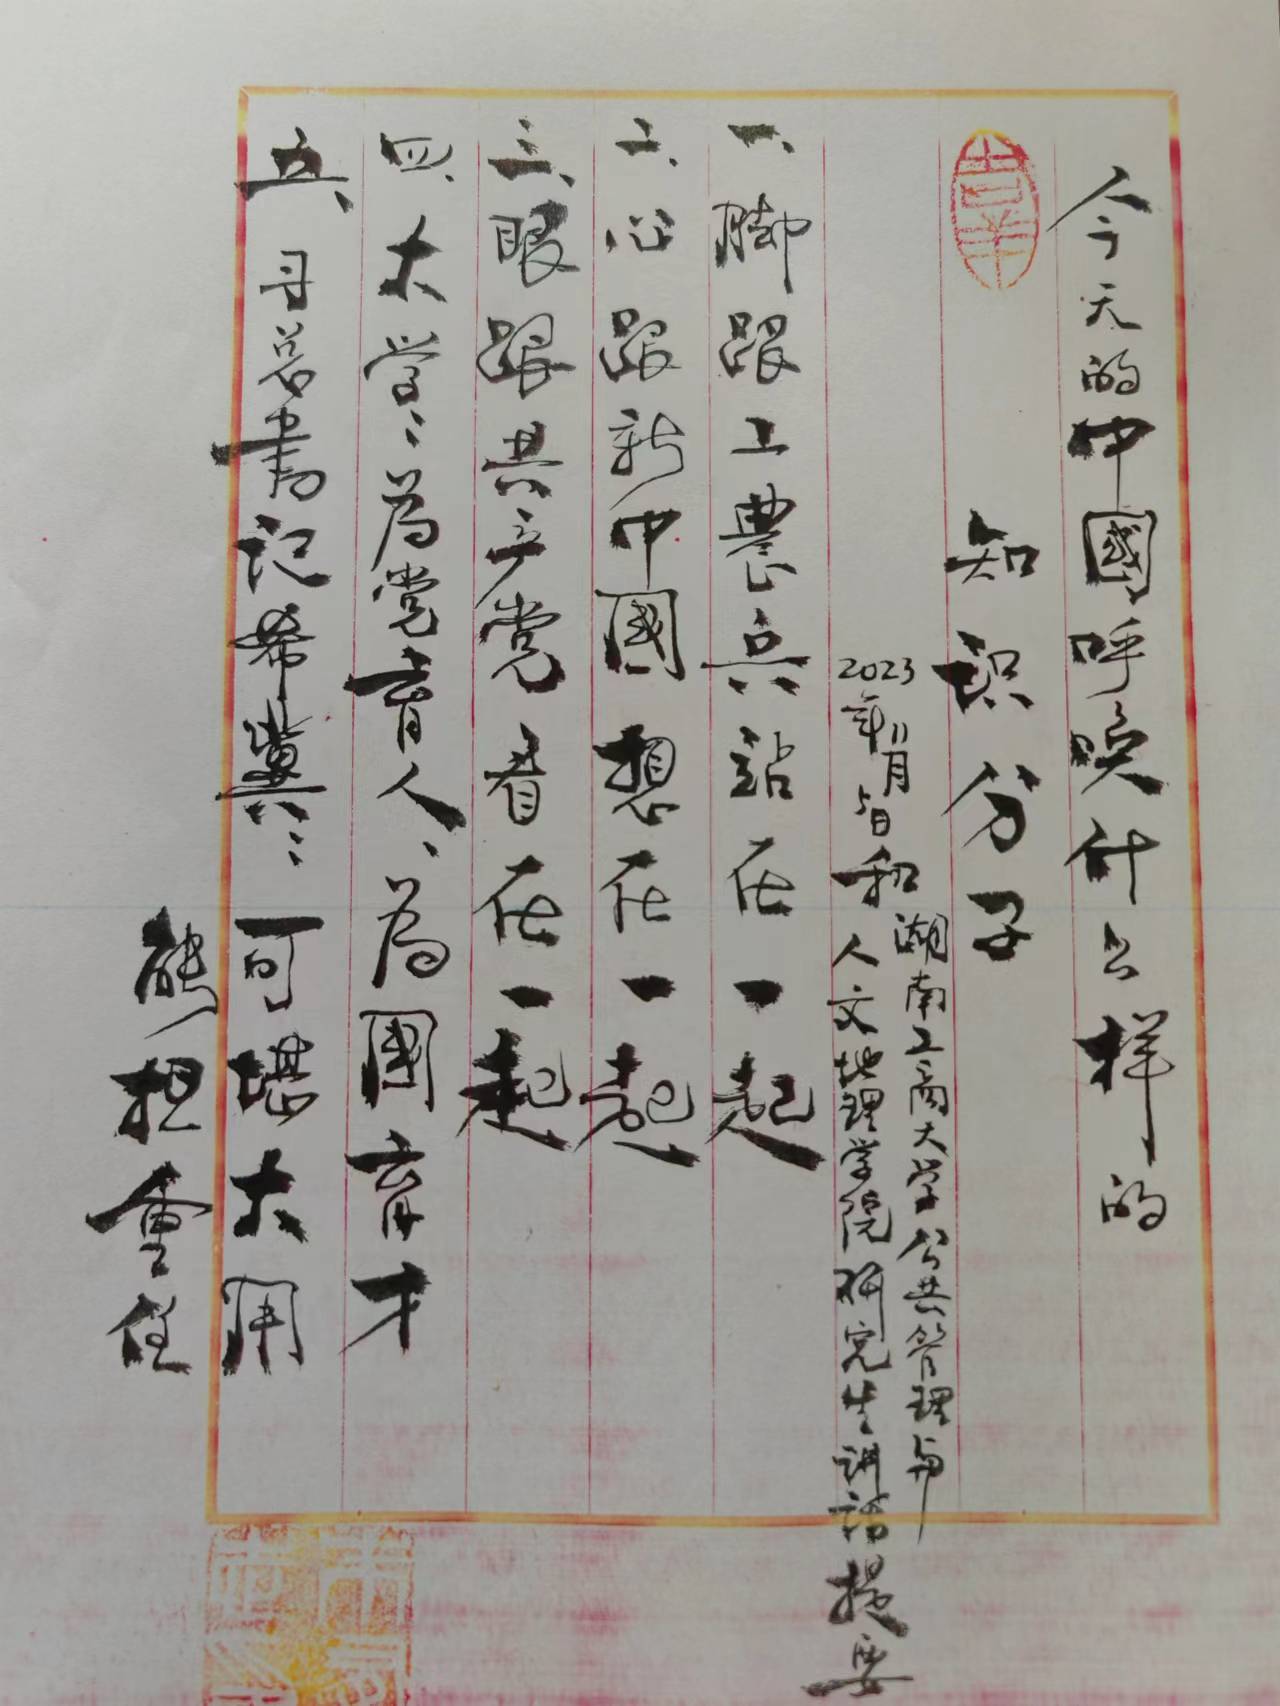 今天的中國呼唤什么样的
知识分子
2023年11月5日和湖南工商大学公共管理与
人文地理学院研究生讲話提要
一、脚跟工農兵站在一起
二、心跟新中國想在一起
三、眼跟共产党看在一起
四、大学:为党育人、为國育才
五、习总書记希冀:可堪大用
能担重任